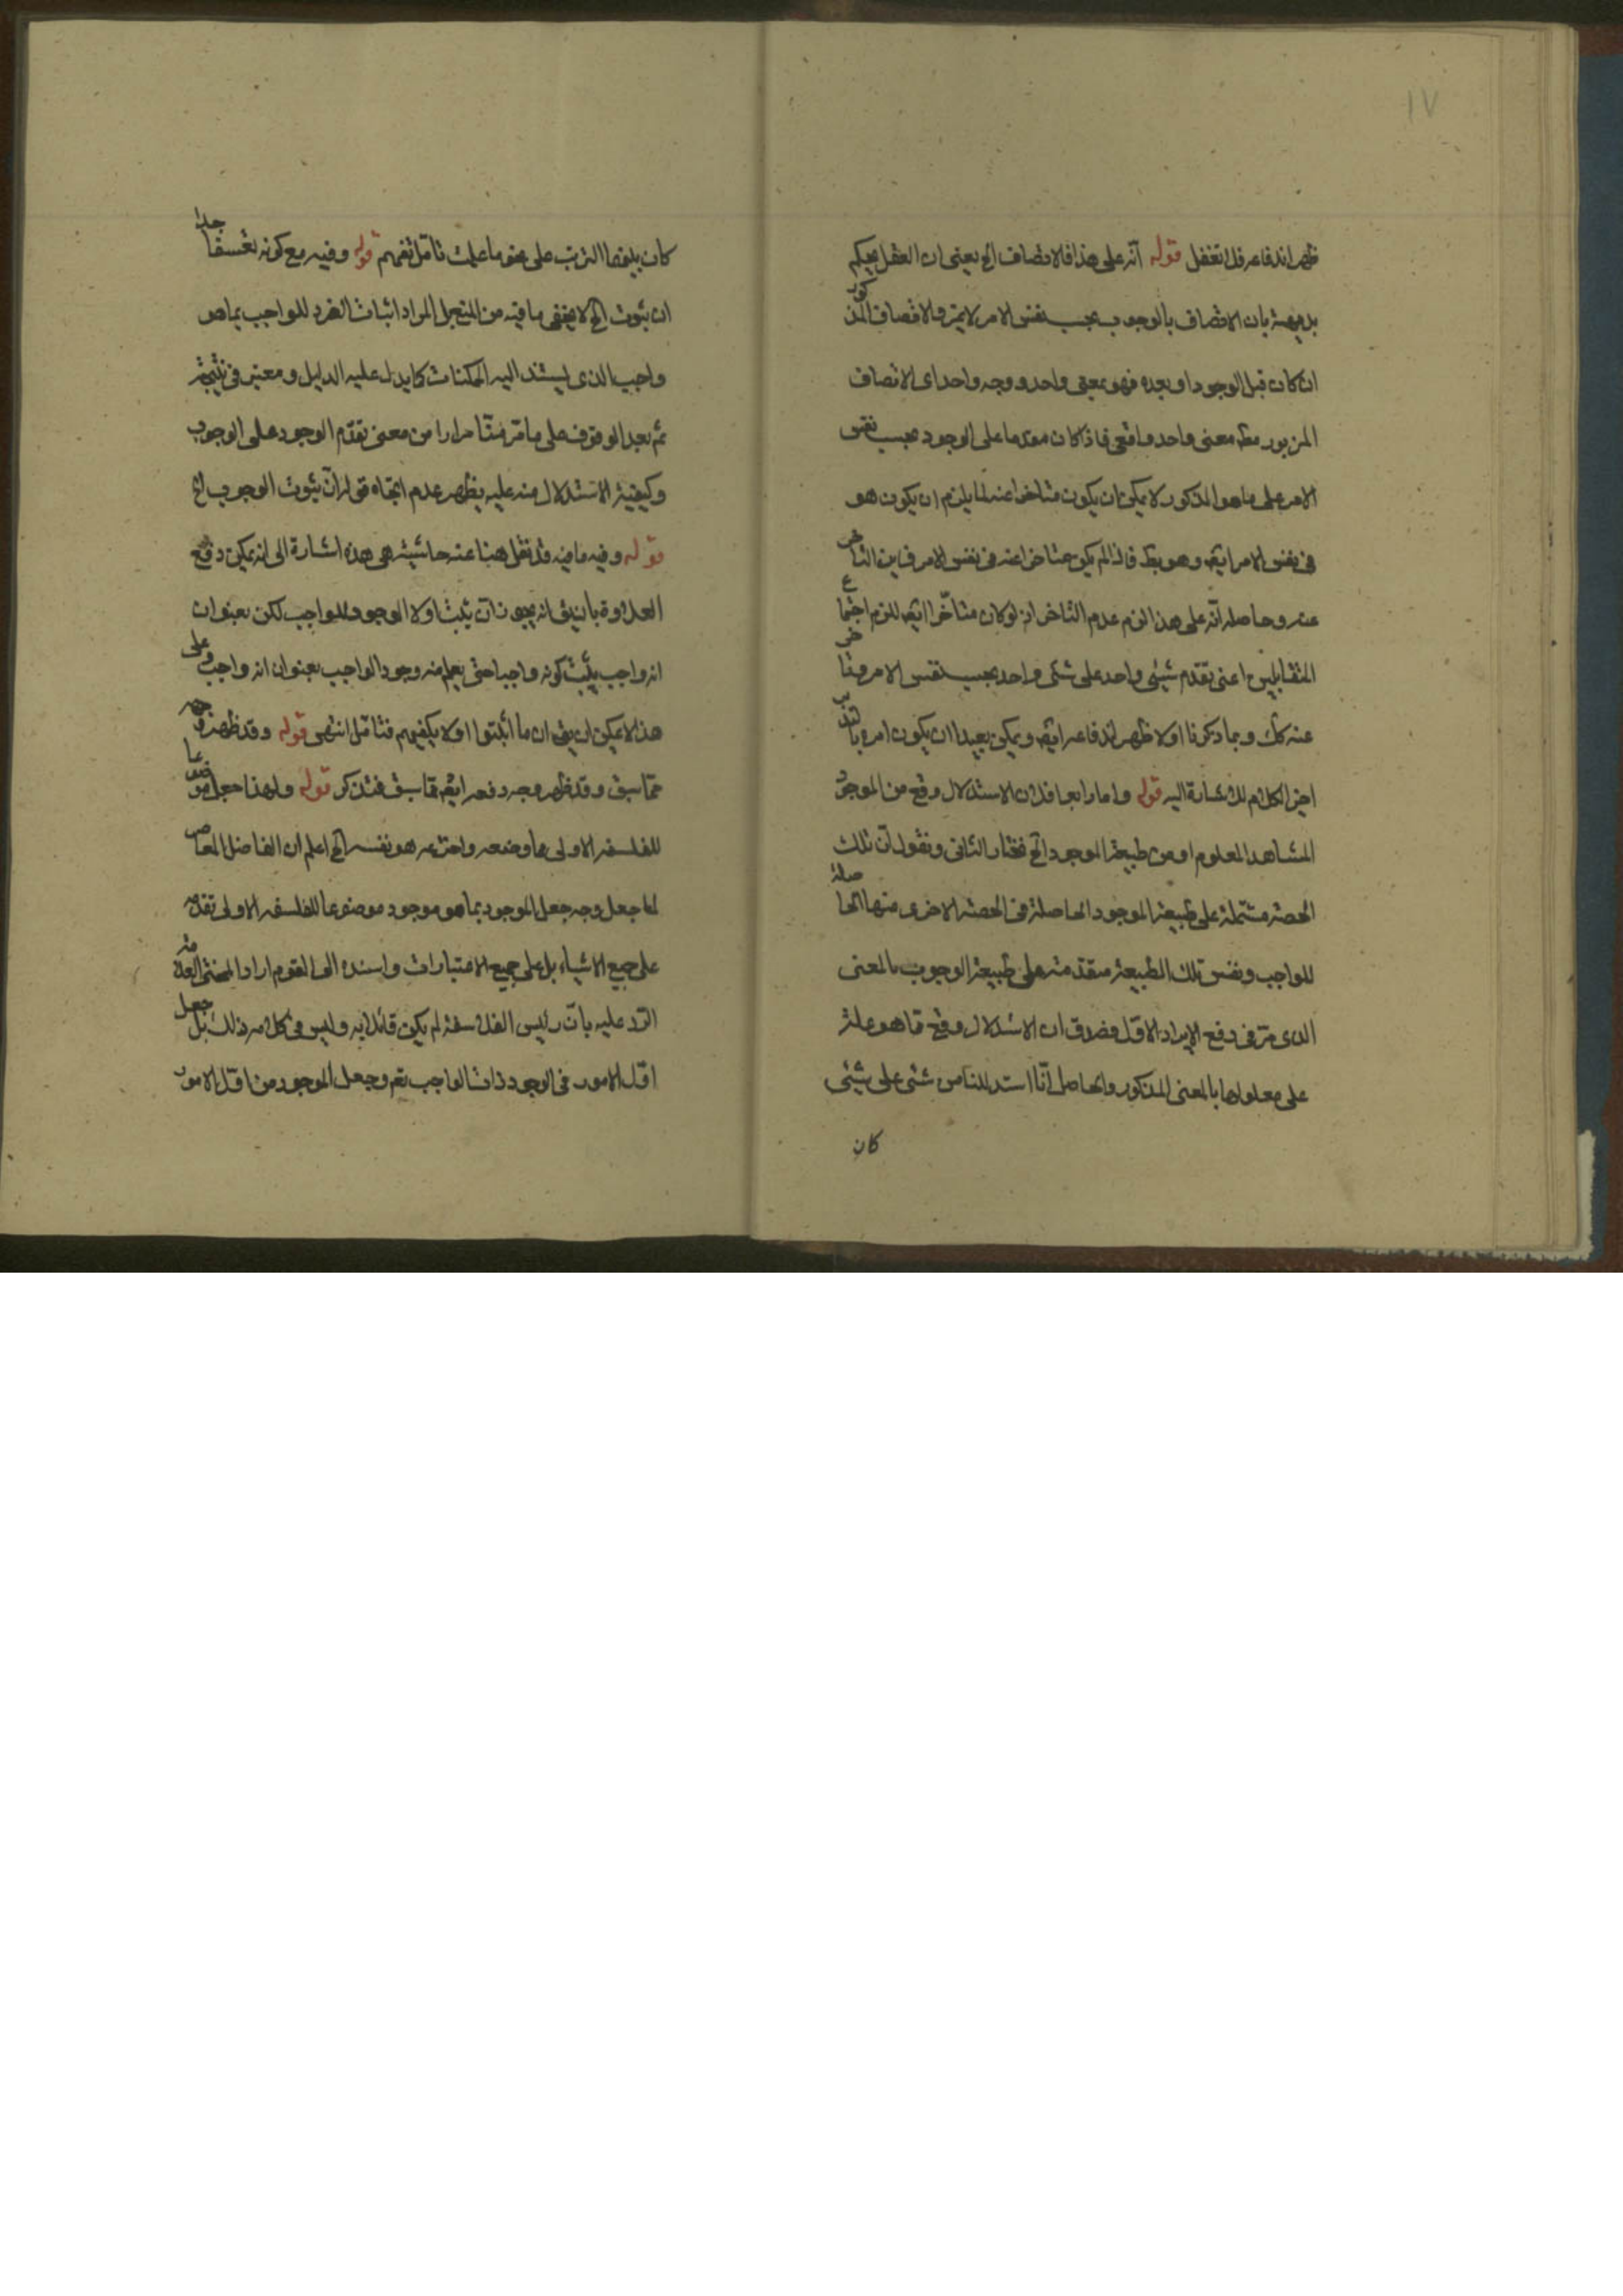 ١٧
ظهر اندفاعه فلا تغفل قوله انّه على هذا فالاتصاف الخ يعنى ان العقل يحكم
بديهة بان الاتصاف بالوجوب بحسب نفس الامر لا يتم والاتصاف المذكور
ان كان قبل الوجود او بعده فهو بمعنى واحد ووجه واحد اى الاتصاف
المزبور معنى واحد واقعى فاذا كان مقدما على الوجود بحسب نفس
الامر على ما هو المذكور لا يمكن ان يكون متاخرا عنه لما يلزم ان يكون هو
فى نفس الامر ايضه وهو بط فاذا لم يكن متاخرا عنه فى نفس الامر فاين التاخر
عنه وحاصله انّه على هذا لزم عدم التاخر اذ لو كان متاخّرا ايضه للزم اجتماع
المتقابلين اعنى تقدم شيئى واحد على شئى واحد بحسب نفس الامر وتاخر
عنه كك وبما ذكرنا اولا ظهر اندفاعه ايضه ويمكن بعيدا ان يكون امره بالتدبر
اخر الكلام للاشارة اليه قوله واما رابعا فلان الاستدلال وقع من الموجود
المشاهد المعلوم او من طبيعة الموجود الخ نختار الثانى ونقول انّ تلك
الحصة مشتملة على طبيعة الموجود الحاصلة فى الحصة الاخرى منها الحاصلة
للواجب ونفس تلك الطبيعة متقدمة على طبيعة الوجوب بالمعنى
الذى مرّ فى دفع الايراد الاوّل فصدق ان الاستدلال وقع ممّا هو علة
على معلولها بالمعنى المذكور والحاصل انّا استدللنا من شئى على شيئى
كان
كان بينهما الترتب على نحو ما علمت تامّل تفهم قوله وفيه مع كونه تعسفا جدا
ان ثبوت الخ لا يخفى ما فيه من التعجل المراد اثبات الفرد للواجب بما هو
واجب الذى يستند اليه الممكنات كما يدل عليه الدليل ومعتبر فى نتيجته
ثم بعد الوقوف على ما مرّ منّا مرارا من معنى تقدّم الوجود على الوجوب
وكيفية الاستدلال منه عليه يظهر عدم اتجاه قوله انّ ثبوت الوجوب الخ
قوله وفيه ما فيه قد نقل هنا عنه حاشية هى هذه اشارة الى انه يمكن دفع
العلاوة بان يق انه يجوز ان يثبت اولا الوجود للواجب لكن بعنوان
انه واجب يثبت كونه واجبا حتى يعلم منه وجود الواجب بعنوان انه واجب وعلى
هذا لا يمكن ان يق ان ما اثبتوا اولا يكفيهم فتامّل انتهى قوله وقد ظهر وجهه
ممّا سبق وقد ظهر وجه دفعه ايضه ممّا سبق فتذكر قوله ولهذا جعل موضوعا
للفلسفه الاولى ما وضعه واخترعه هو نفسه الخ اعلم ان الفاضل المعاصر
لما جعل وجه جعل الموجود بما هو موجود موضوعا للفلسفه الاولى تقدّمه
على جميع الاشياء بل على جميع الاعتبارات واسنده الى القوم اراد المحشى العلامة
الرّد عليه بانّ رئيس الفلاسفة لم يكن قائلا به وليس فى كلامه ذلك بل جعل
اوّل الامور فى الوجود ذات الواجب تعم وجعل الموجود من اوّل الامور